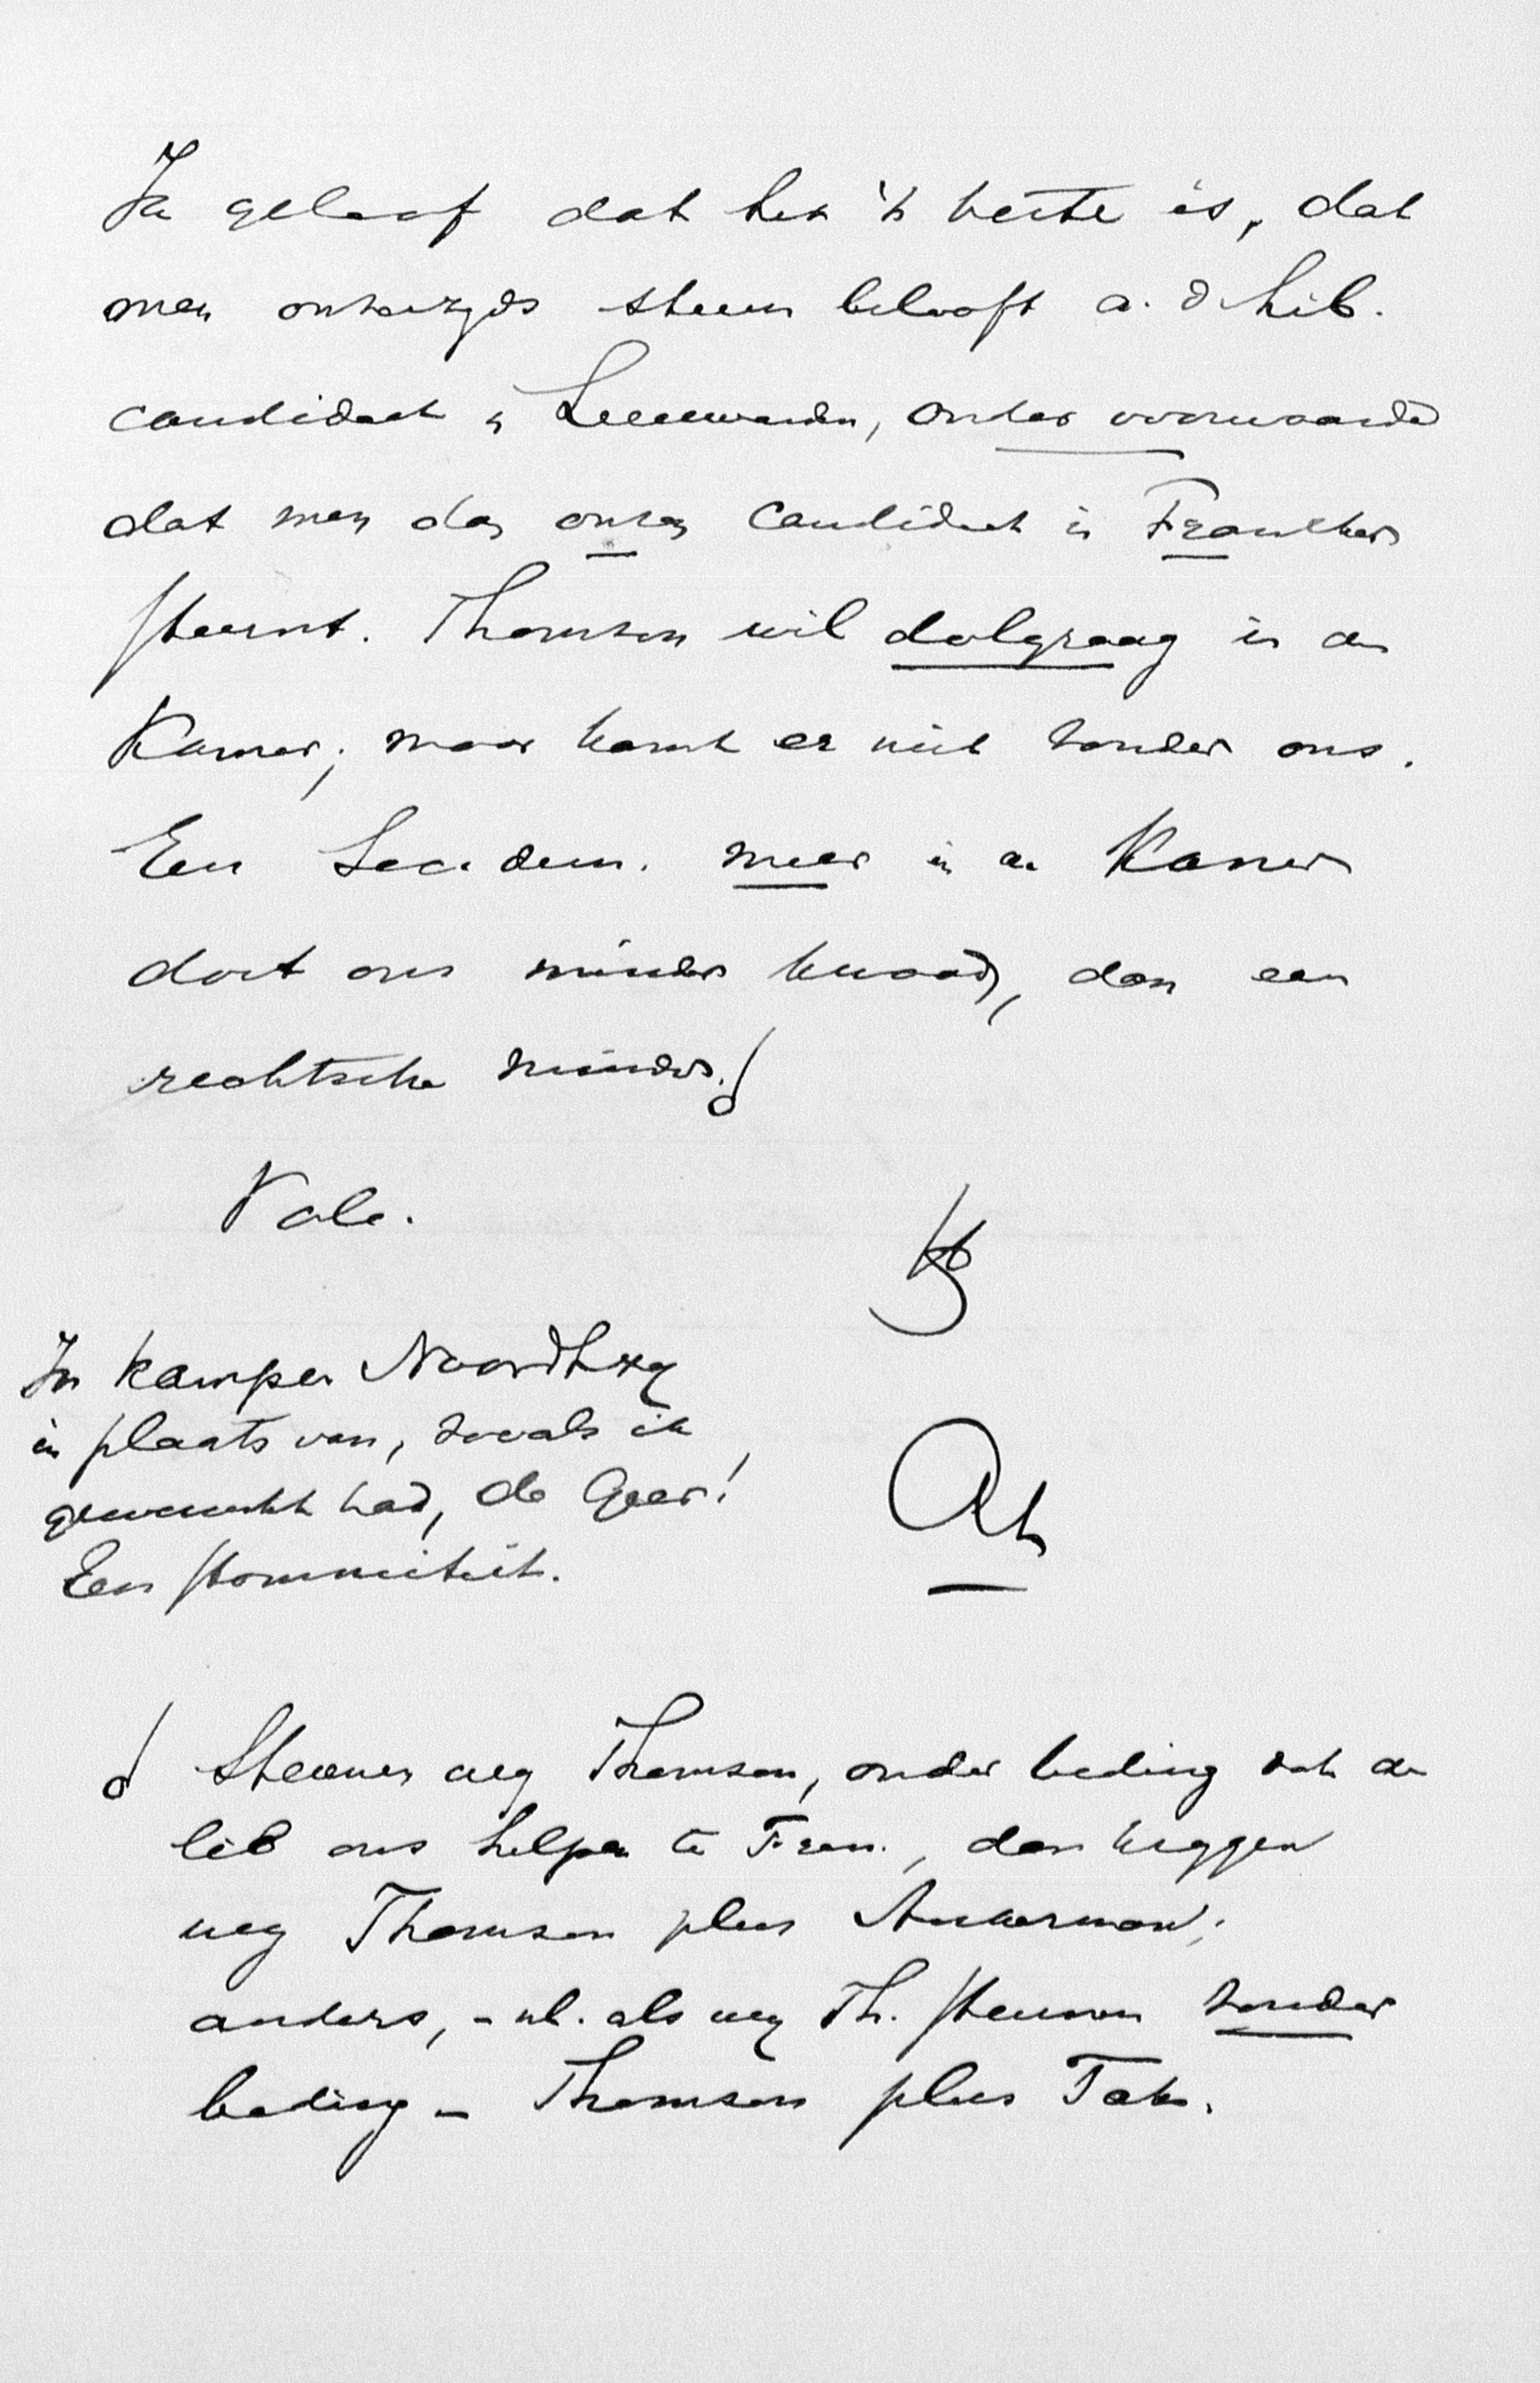 Ik geloof dat het 't beste is, dat
men onzerzijds steun belooft a. d lib.
candidaat in Leeuwarden, onder voorwaarde
dat men dan onzen candidaat in Franeker
steunt. Thomson wil dolgraag in de
Kamer; maar komt er niet zonder ons.
Een Soc. dem. meer in de Kamer
doet ons minder kwaad, dan een
rechtsche minder.
Vale.
In Kampen Noordtzy
in plaats van, zooals ik
gewenscht had, de Geer!
Een stommiteit.
Steunen wij Thomson, onder beding dat de
lib ons helpen te Fran., dan krijgen
wij Thomson plus Ankerman;
anders, - nl. als wij Th. steunen zonder
beding - Thomson plus Tak.